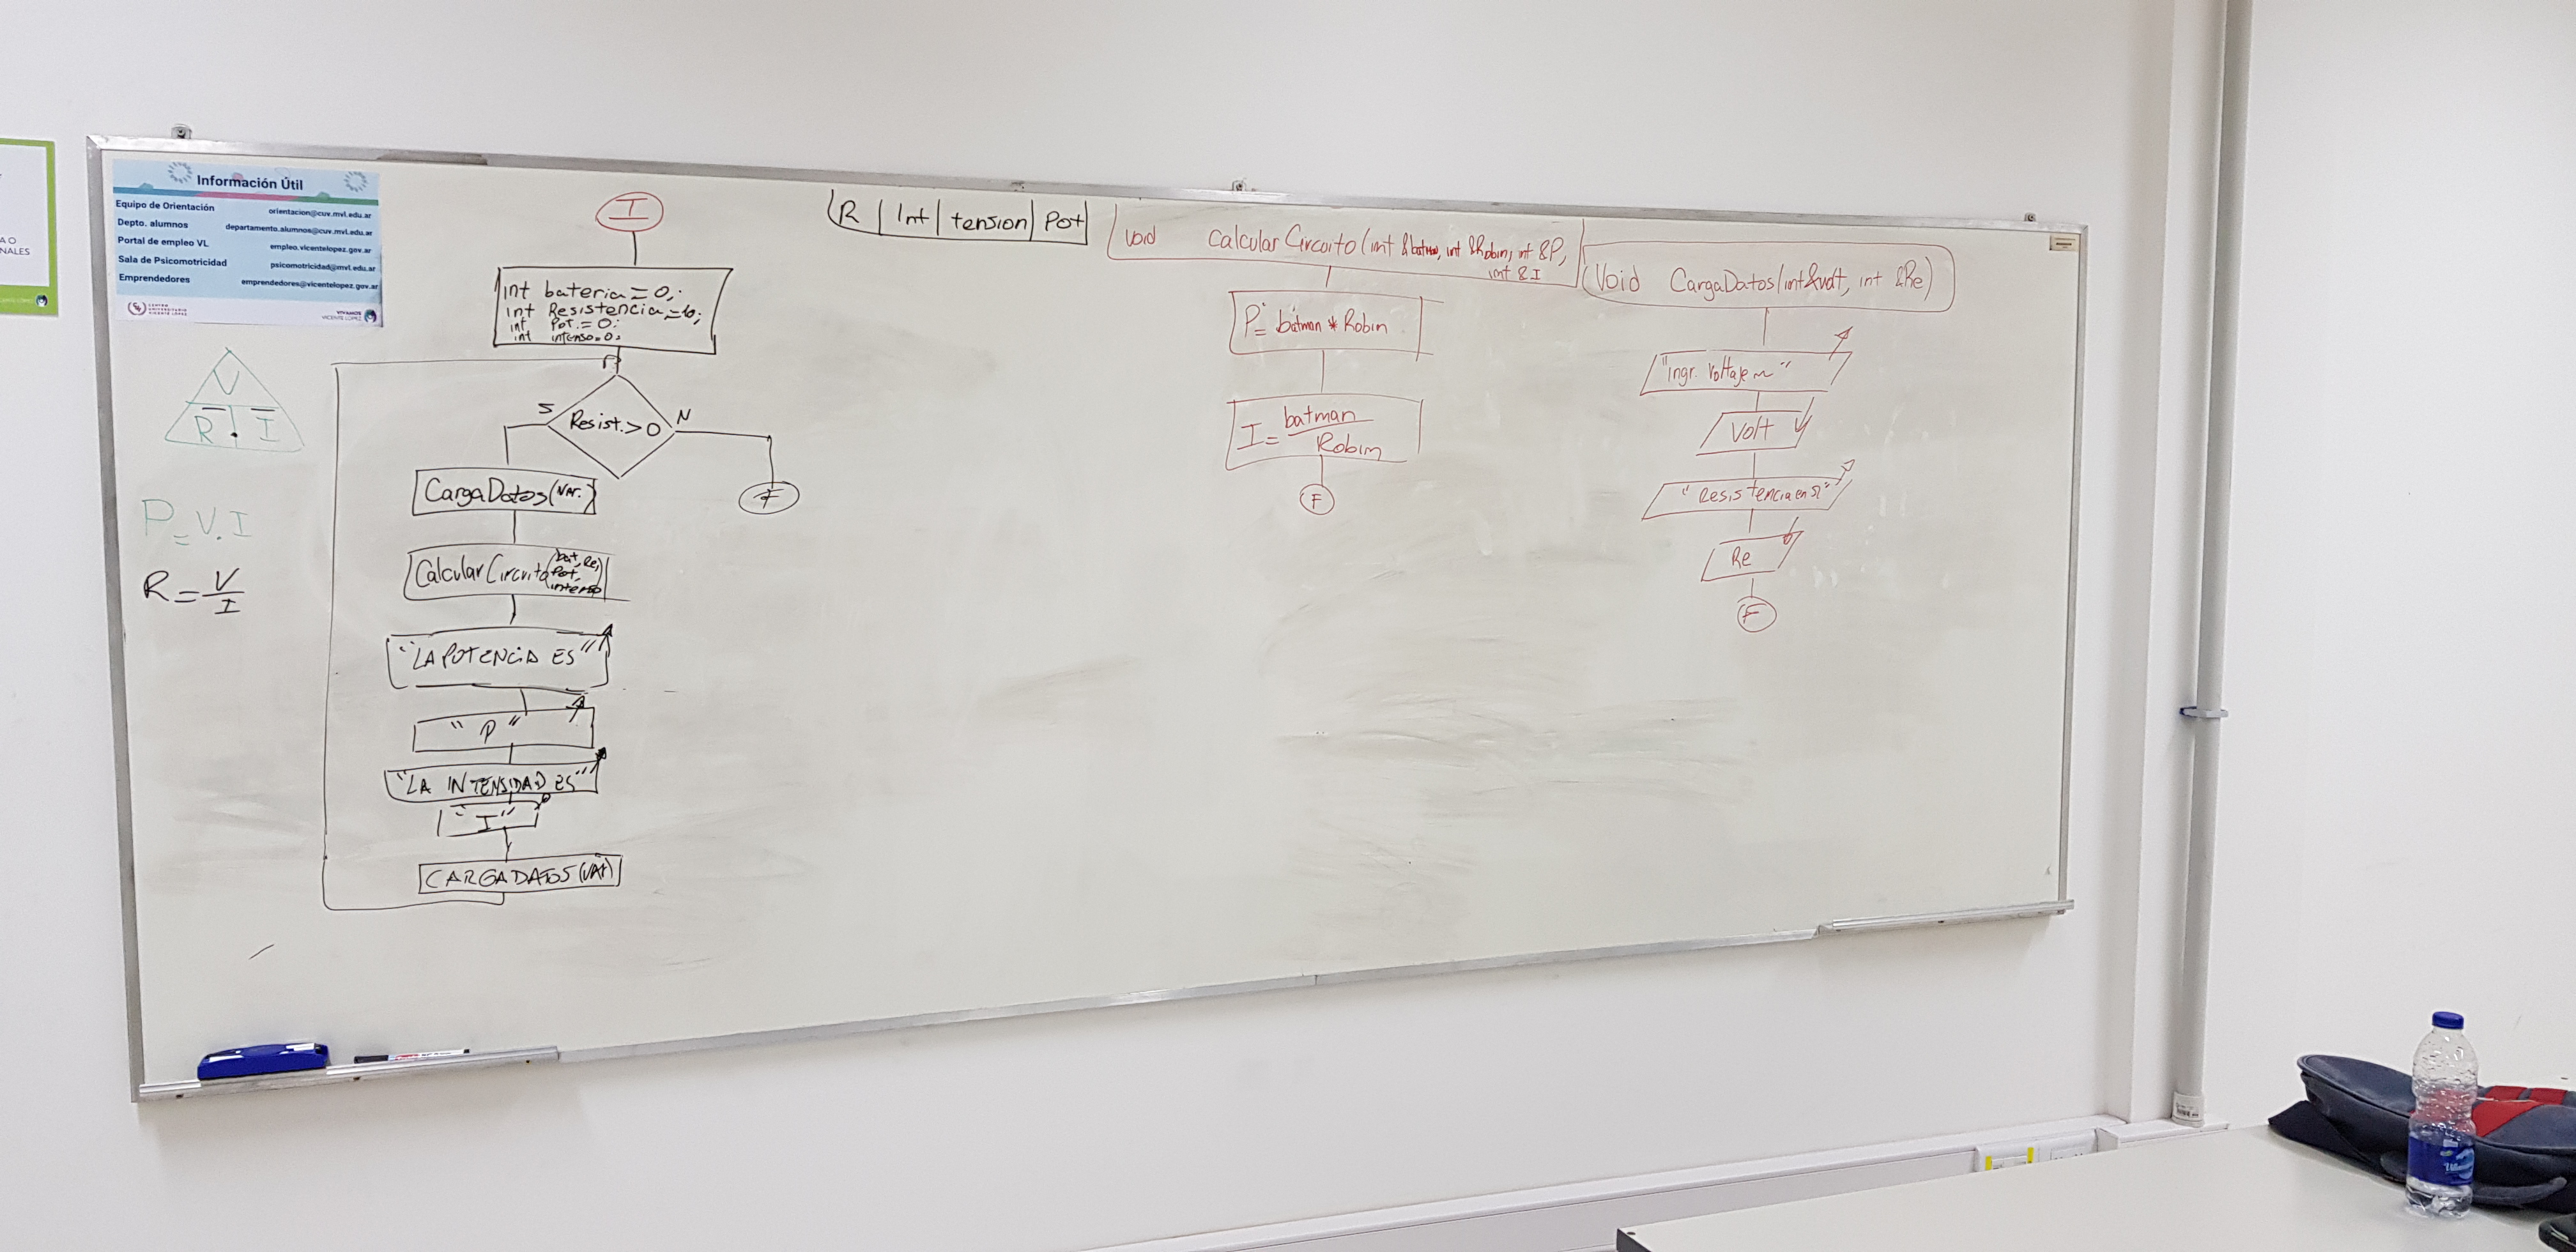 Información Útil
Equipo de Orientación orientacion@cuv.mvl.edu.ar
Depto. alumnos departamento.alumnos@cuv.mvl.edu.ar
Portal de empleo VL empleo.vicentelopez.gov.ar
Sala de Psicomotricidad psicomotricidad@mvl.edu.ar
Emprendedores emprendedores@vicentelopez.gov.ar
CENTRO
UNIVERSITARIO
VICENTE LÓPEZ
VICENTE LÓPEZ
NALES
V
R . I
P=V.I
R=V
I
I
int bateria=0;
int Resistencia=
int Pot.=0;
int intenso=0;
Resist.>0
S
N
F
CargaDatos(Var.)
CalcularCircuito(bat, Re,
Pot,
intenso)
"LA POTENCIA ES"
"P"
"LA INTENSIDAD ES"
"I"
CARGADATOS(VAR)
R | Int | tension | Pot
void CalcularCircuito(int &batman, int &Robin, int &P,
int &I
P= batman * Robin
I= batman
Robin
F
Void CargaDatos(int &volt, int &Re)
"Ingr. Voltaje"
Volt
"Resistencia en Ω"
Re
F